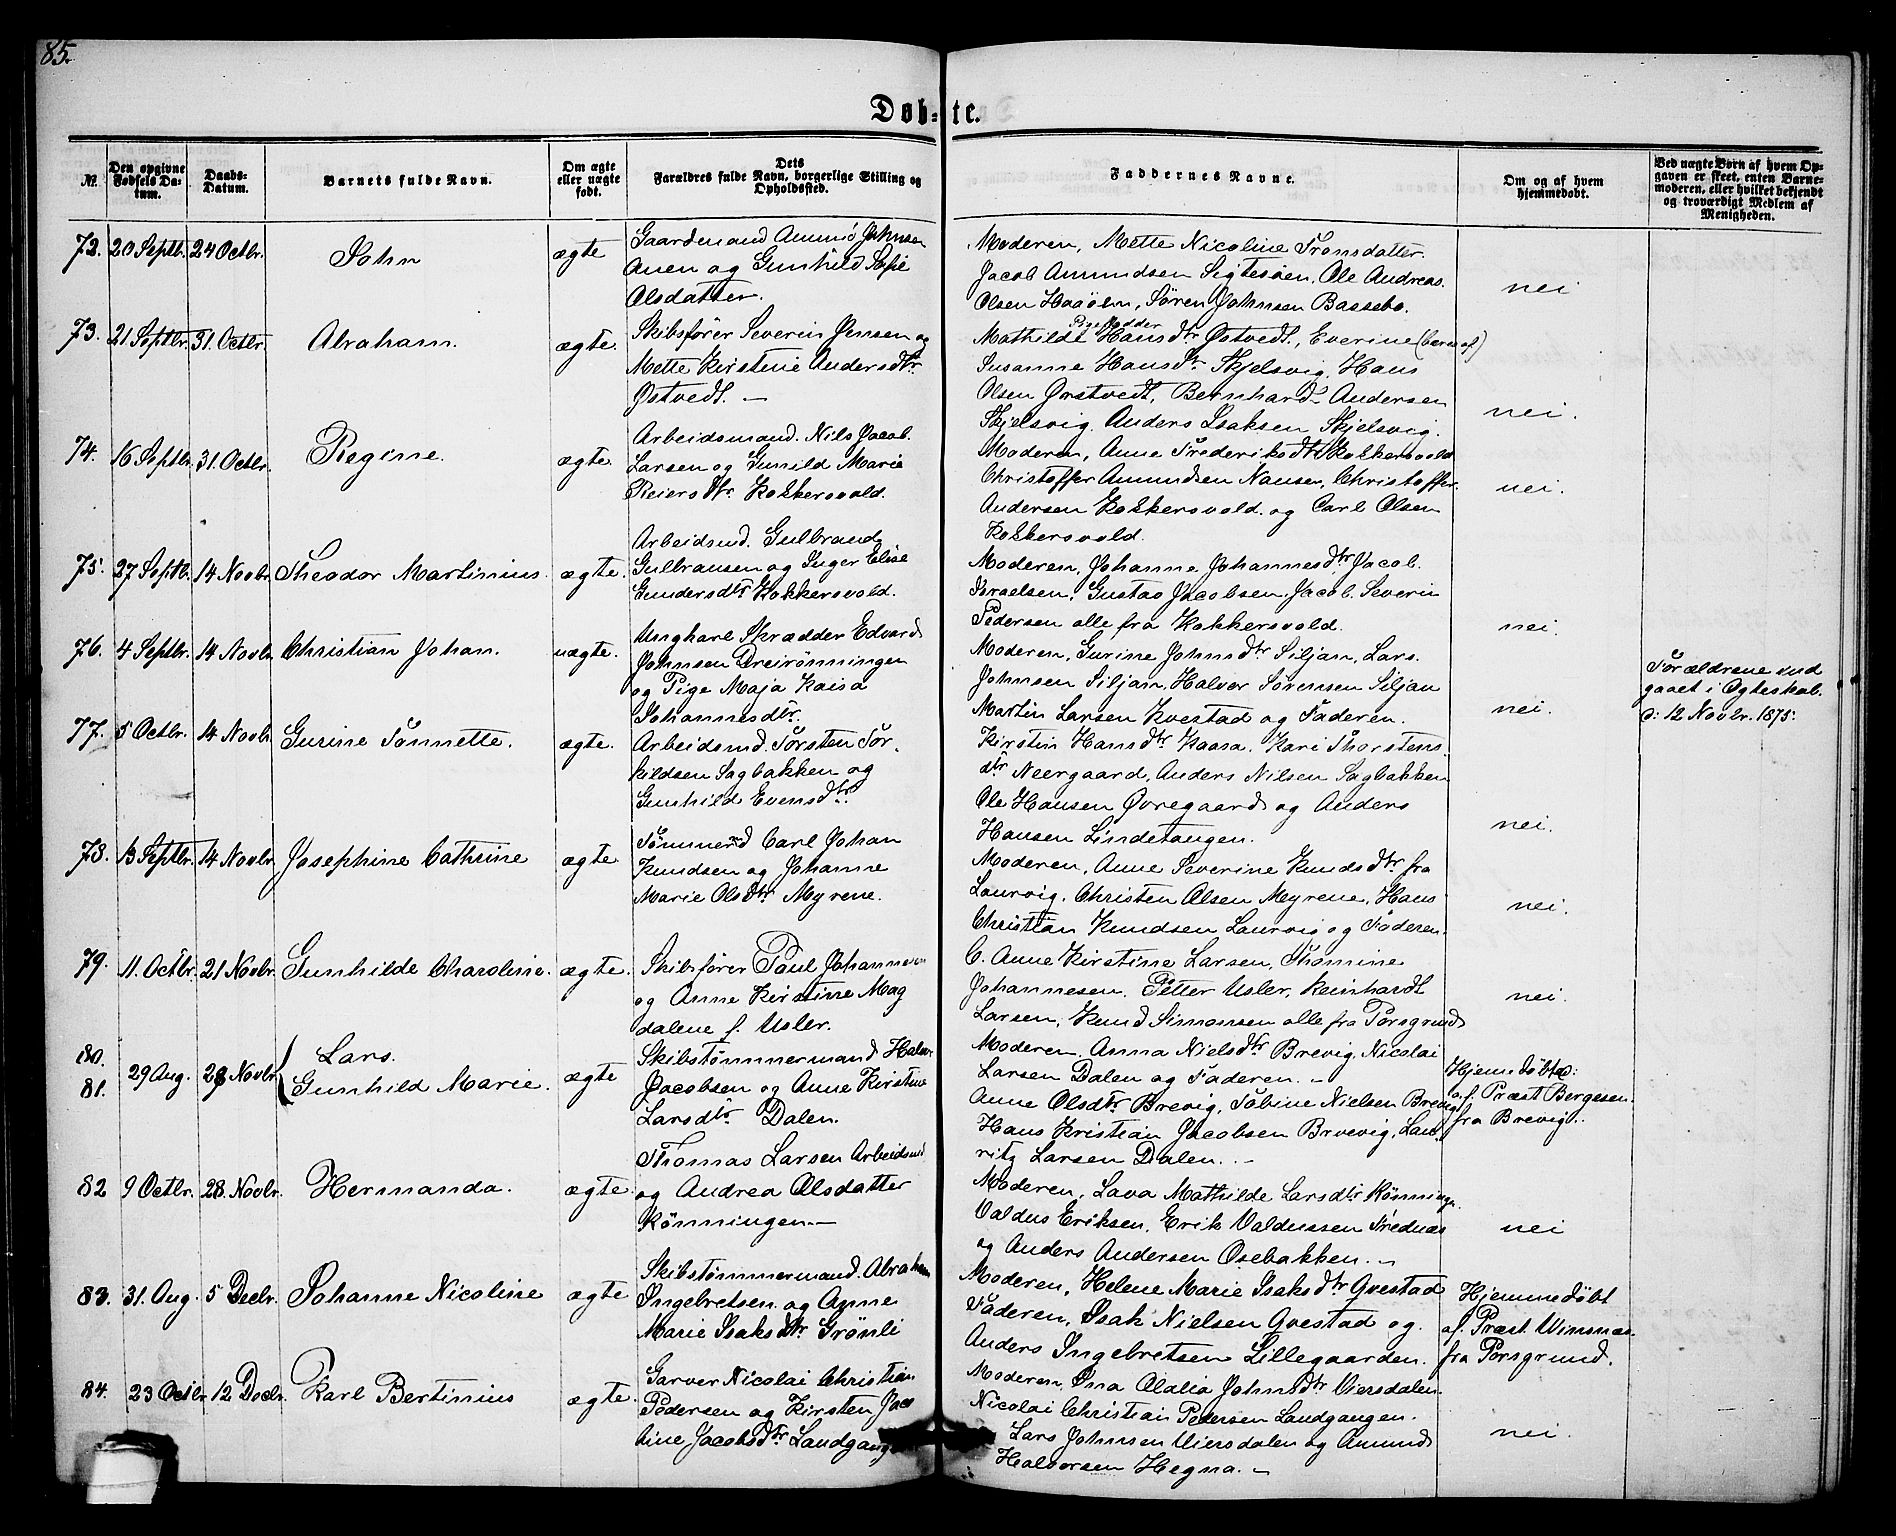 85.
Døbte.
No.
Den opgivne Fødsels Datum.
Daabs-Datum.
Barnets fulde Navn.
Om ægte eller uægte født.
Dets Forældres fulde Navn, borgerlige Stilling og Opholdssted.
Faddernes Navne.
Om og af hvem hjemmedøbt.
Ved uægte Børn af hvem Opgaven er skeet, enten Barnemoderen, eller hvilket bekjendt og troværdigt Medlem af Menigheden.
72. 20 Septbr. 24 Octbr. John ægte
Gaardmand Johnsen
Auen og Gunhild Sofie
Olsdatter.
Moderen, Mette Nicoline Tronsdatter.
Jacob Amundsen Sigtesøen, Ole Andreas
Olsen Søren Johnsen Bassebo.
nei
73. 21 Septbr. 31. Octbr. Abraham. ægte.
Skibsfører Severin Jensen og
Mette Kirstine Andersdtr.
Østvedt. —
Pige fadder
Mathilde Hansdtr Østvedt, Everine (baren af)
Susanne Hansdtr Skjelsvig, Hans
Olsen Ørstvedt, Bernhard Andersen
Skjelsvig, Anders Isaksen Skjelsvig.
nei.
74. 16 Septbr. 31. Octbr. Regine. ægte.
Arbeidsmand. Nils Jacob.
Larsen og Gunild Marie
Reiersdtr. Kokkersvold.
Moderen, Anne Frederiksdtr Kokkersvold
Christoffer Amundsen Nansen, Christoffer
Andersen Kokkersvold. og Carl Olsen
Kokkersvold.
nei.
75. 27 Septbr. 14 Novbr. Theodor Martinius. ægte.
Arbeidsmd. Gulbrand
Gulbransen og Inger Elise
Gundersdtr Kokkersvold.
Moderen, Johanne Johannesdtr, Jacob.
Israelsen, Gustav Jacobsen. Jacob. Severin
Pedersen alle fra Kokkersvold.
nei.
76. 4 Septbr. 14 Novbr. Christian Johan. uægte.
Ungkarl Skrædder Edvard
Johnsen Dreirønningen
og Pige Maja Kaisa
Johannesdtr.
Moderen, Gurine Johnsdtr Siljan, Lars.
Johnsen Siljan, Halvor Sørensen Siljan
Martin Larsen Kvestad og Faderen.
nei.
Forældrene ind
gaaet i Ægteskab.
d: 12 Novbr. 1875.
77. 5 Octbr. 14 Novbr. Gurine Tonnette. ægte.
Arbeidsmd. Torsten Tor-
kildsen Sagbakken og
Gunhild Evensdtr.
Kirstin Hansdtr Kaasa. Kari Thorstens
dtr Neergaard, Anders Nilsen Sagbakken
Ole Hansen Øvregaard og Anders
Hansen Lindetangen.
nei.
78. 13 Septbr. 14 Novbr. Josephine Cathrine ægte.
Tømmermd Carl Johan
Knudsen og Johanne
Marie Olsdtr Myrene.
Moderen, Anne Severine Knudsdtr fra
Laurvig. Christen Olsen Myrene, Hans
Christian Knudsen Laurvig og Faderen.
nei.
79. 11. Octbr. 21 Novbr. Gunhilde Charoline. ægte.
Skibsfører Paul Johannesen
og Anne Kirstine Mag
dalene f. Usler.
C. Anne Kirstine Larsen, Thomine
Johannesen. Petter Usler, Reinhardt
Larsen, Knud Simonsen alle fra Porsgrund
nei.
80. 81. 29 Aug. 28 Novbr. Lars. Gunhild Marie. ægte
Skibstømmermand Halvor
Jacobsen og Anne Kirstine
Larsdtr Dalen.
Moderen, Anna Nielsdtr Brevig, Nicolai
Larsen Dalen og Faderen. —
Anne Olsdtr Brevig, Tobine Nielsen Brevig
Hans Kristian Jacobsen Brevig, Lau
ritz Larsen Dalen. —
Hjemmedøbte:
af. Præst Bergesen.
fra Brevig.
82 9 Octbr. 28. Novbr. Hermanda. ægte.
Thomas Larsen Arbeidsmd
og Andrea Olsdatter
Rønningen —
Moderen, Lava Mathilde Larsdtr Rønningen
Valdus Eriksen, Erik Valdussen Frednæs
og Anders Andersen Osebakken. —
nei
83. 31. Aug. 5 Decbr. Johanne Nicoline ægte
Skibstømmermand. Abraham
Ingebretsen og Anne
Marie Isaksdtr Grønli
Moderen, Helene Marie Isaksdtr Qvestad
Faderen, Isak Nielsen Qvestad og
Anders Ingebretsen Lillegaarden.
Hjemmedøbt
af. Præst. Wimsnæs
fra Porsgrund.
84. 23 Octbr 12 Decbr. Karl Bertinius ægte.
Garver Nicolai Christian
Pedersen og Kirsten Jaco
bine Jacobsdtr Landgangen
Moderen, Ina Alalia Johnsdtr Viersdalen.
Nicolai Christian Pedersen Landgangen.
Lars Johnsen Viersdalen og Amund
Halvorsen Hegna. —
nei.